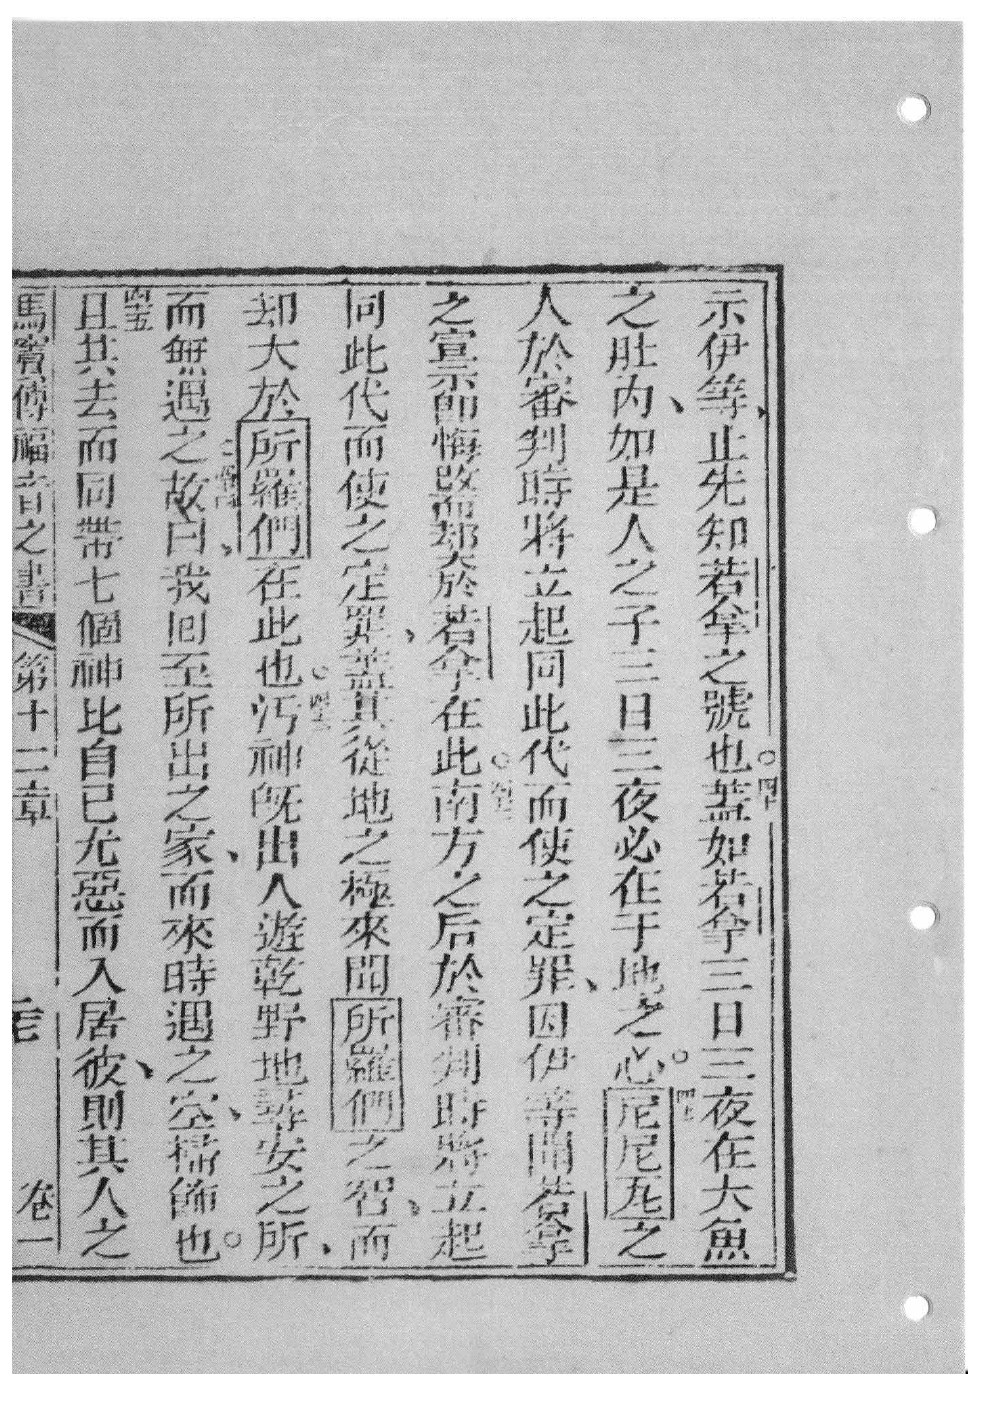 示伊等、止先知若拿之號也。四十蓋如若拿三日三夜在大魚
之肚內、如是人之子三日三夜必在于地之心。四十一尼尼瓦之
人於審判時將立起同此代而使之定罪、因伊等聞若拿
之宣示即悔改而却大於若拿在此。四十二南方之后於審判時將立起
同此代而使之定罪、蓋其從地之極來聞所羅們之智、而
却大於所羅們在此也。四十三污神既出人遊乾野地尋安之所、
而無遇之故曰、四十四我回至所出之家、而來時遇之空、掃飾也。
四十五且其去而同帶七個神比自己尤惡而入居彼、則其人之
馬竇傳福音之書 第十二章 卷一